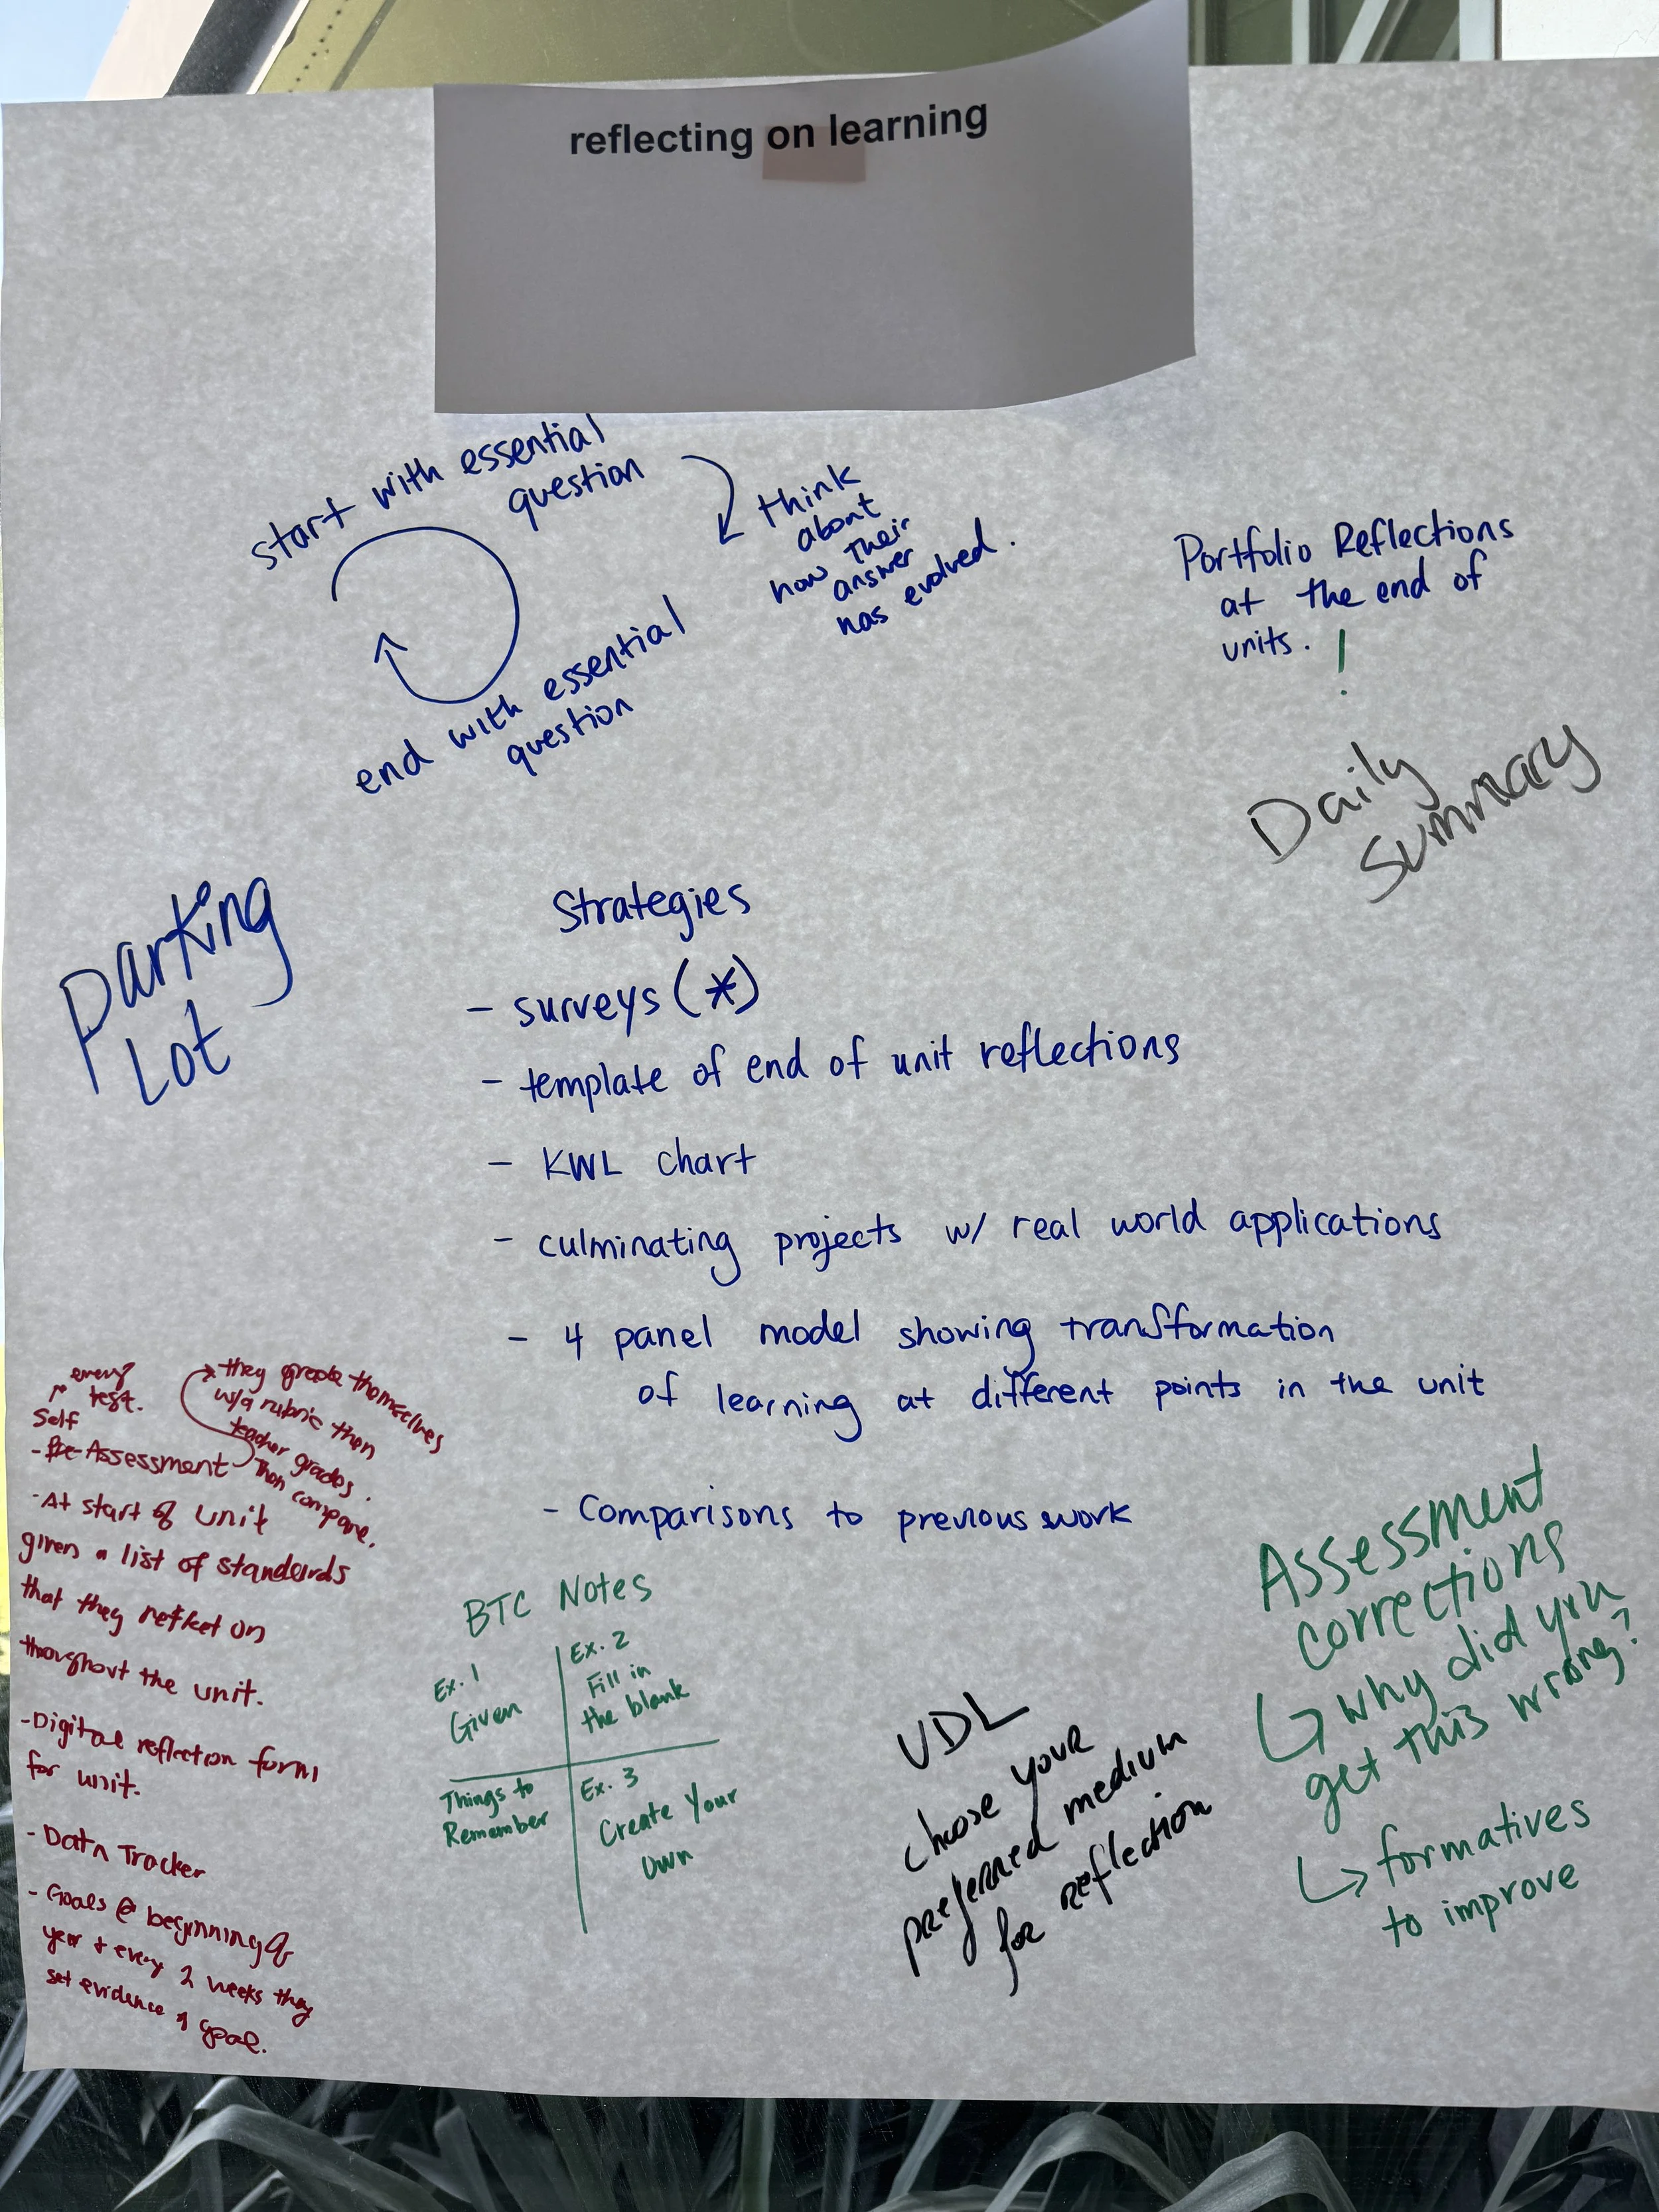 reflecting on learning
start with essential
question
think
about
how their
answer
has evolved.
end with essential
question
Portfolio Reflections
at the end of
units. !
Daily
Summary
Parking
Lot
Strategies
- surveys (*)
- template of end of unit reflections
- KWL chart
- culminating projects w/ real world applications
- 4 panel model showing transformation
of learning at different points in the unit
- Comparisons to previous work
every
test.
Self
- Pre-Assessment
they grade themselves
w/a rubric then
teacher grades.
Then compare.
- At start of unit
given a list of standards
that they reflect on
throughout the unit.
- Digital reflection form
for unit.
- Data Tracker
- Goals @ beginning of
year + every 2 weeks they
set evidence of goal.
BTC Notes
Ex. 1
Given
Ex. 2
Fill in
the blank
Things to
Remember
Ex. 3
Create Your
Own
UDL
choose your
preferred medium
for reflection
Assessment
corrections
↳ why did you
get this wrong?
↳ formatives
to improve